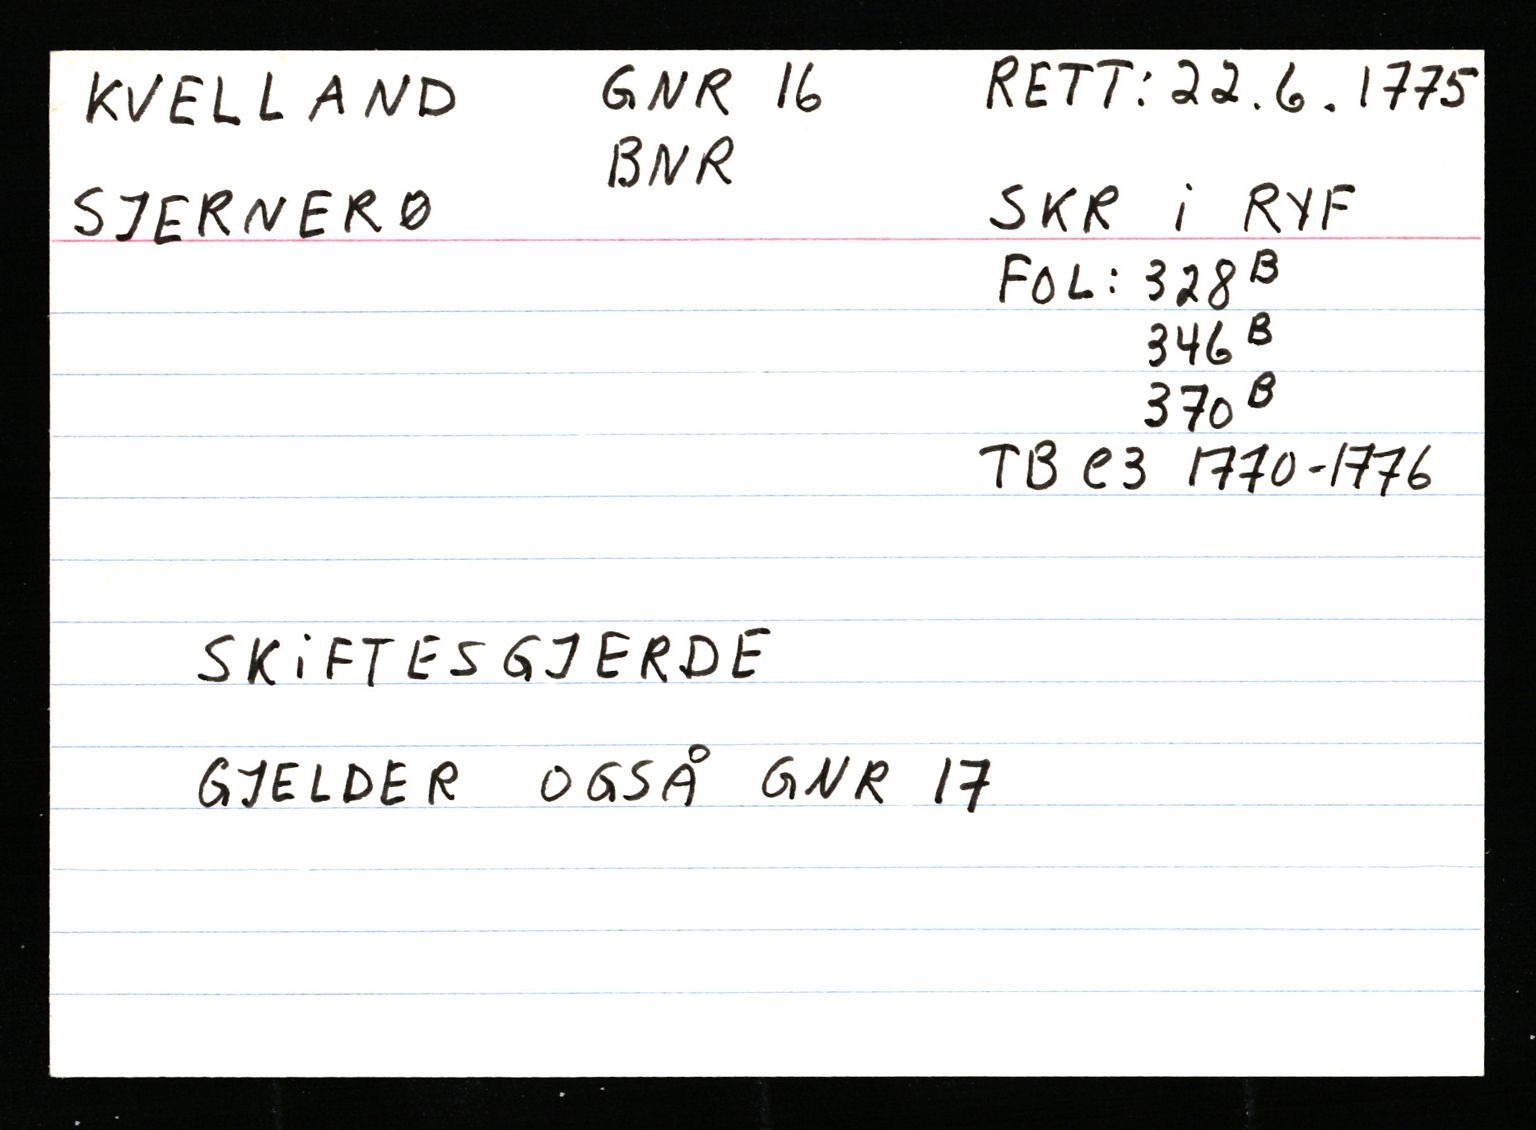 KVELLAND GNR 16 RETT: 22.6.1775
BNR
SJERNERØ SKR i RYF
FOL: 328B
346B
370B
TB C3 1770-1776
SKIFTESGJERDE
GJELDER OGSÅ GNR 17